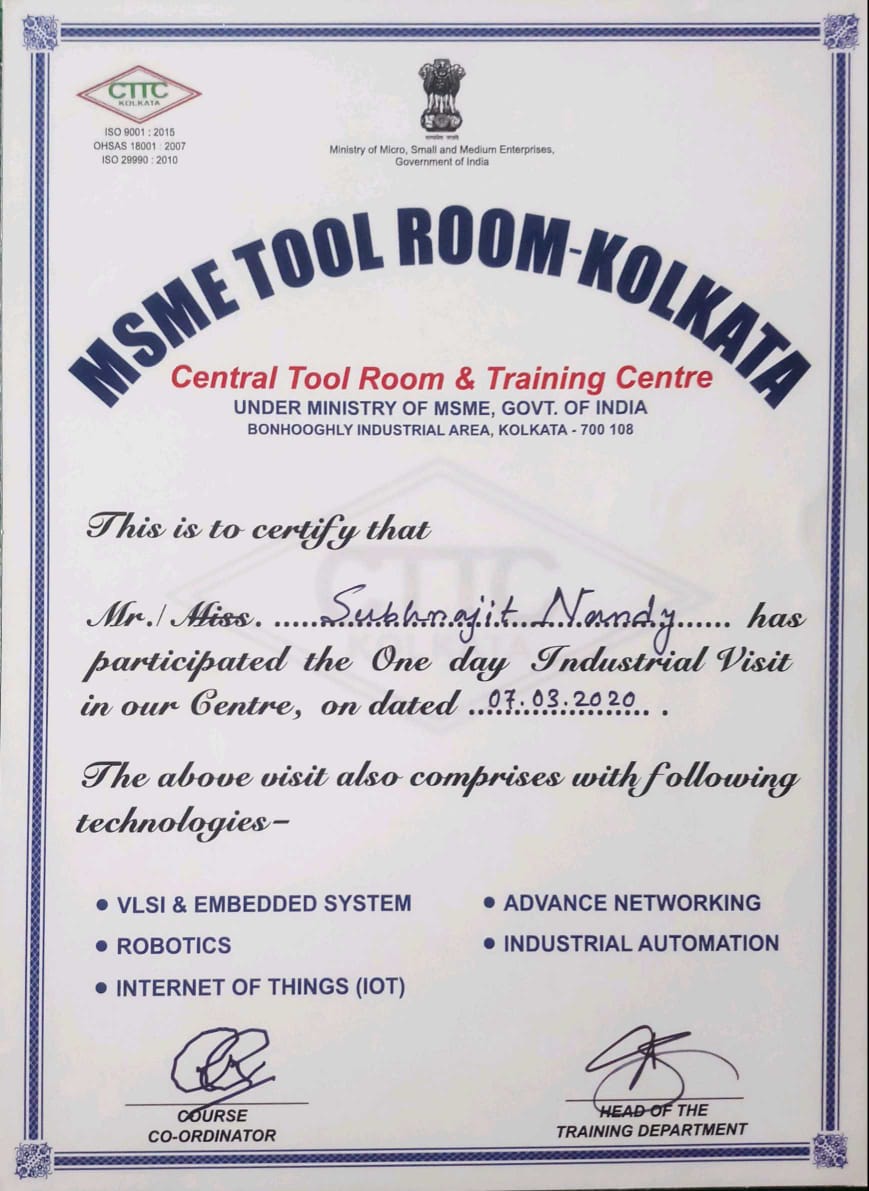 CTTC
KOLKATA
ISO 9001 : 2015
OHSAS 18001 : 2007
ISO 29990 : 2010
सत्यमेव जयते
Ministry of Micro, Small and Medium Enterprises,
Government of India
MSME TOOL ROOM-KOLKATA
Central Tool Room & Training Centre
UNDER MINISTRY OF MSME, GOVT. OF INDIA
BONHOOGHLY INDUSTRIAL AREA, KOLKATA - 700 108
CTTC
KOLKATA
This is to certify that
Mr./ Miss. ......Subhnajit Nandy...... has
participated the One day Industrial Visit
in our Centre, on dated ..07.03.2020.. .
The above visit also comprises with following
technologies-
• VLSI & EMBEDDED SYSTEM
• ROBOTICS
• INTERNET OF THINGS (IOT)
• ADVANCE NETWORKING
• INDUSTRIAL AUTOMATION
COURSE
CO-ORDINATOR
HEAD OF THE
TRAINING DEPARTMENT